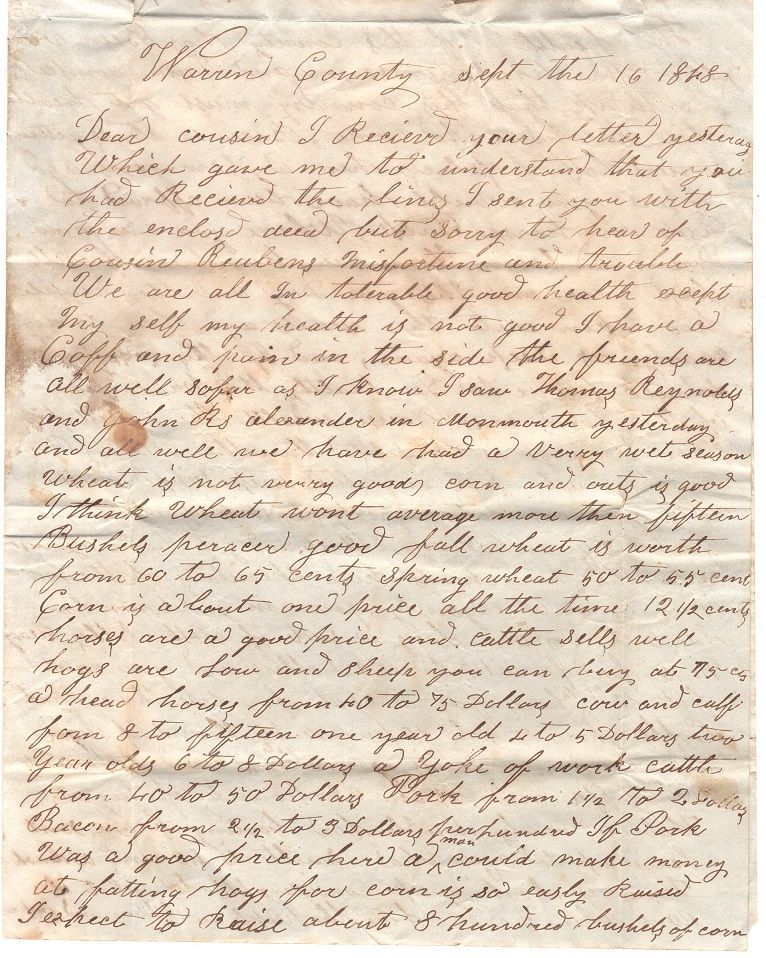 Warren County Sept the 16 1848
Dear cousin I Recievd your letter yesterday
Which gave me to understand that you
had Recievd the lines I sent you with
the enclosd deed but Sorry to hear of
Cousin Reubens Misfortune and trouble
We are all In tolerable good health except
My self my health is not good I have a
Coff and pain in the side the friends are
all well sofar as I know I saw Thomas Reynolds
and John Rs alexander in Monmouth yesterday
and all well we have had a Verry wet season
Wheat is not verry good corn and outs is good
I think Wheat wont average more then fifteen
Bushels peracer good fall wheat is worth
from 60 to 65 cents spring wheat 50 to 55 cent
Corn is about one price all the time 12 1/2 cents
horses are a good price and cattle sells well
hogs are low and sheep you can buy at 75 cs
a head horses from 40 to 75 Dollars cow and calf
fom 8 to fifteen one year old 4 to 5 Dollars two
Year olds 6 to 8 Dollars a Yoke of work cattle
from 40 to 50 Dollars Pork from 1 1/2 to 2 Dollars
Bacon from 2 1/2 to 3 Dollars perhundred If Pork
Was a good price here a man could make money
at fatting hogs for corn is so easly Raised
I expect to Raise about 8 hundred bushels of corn